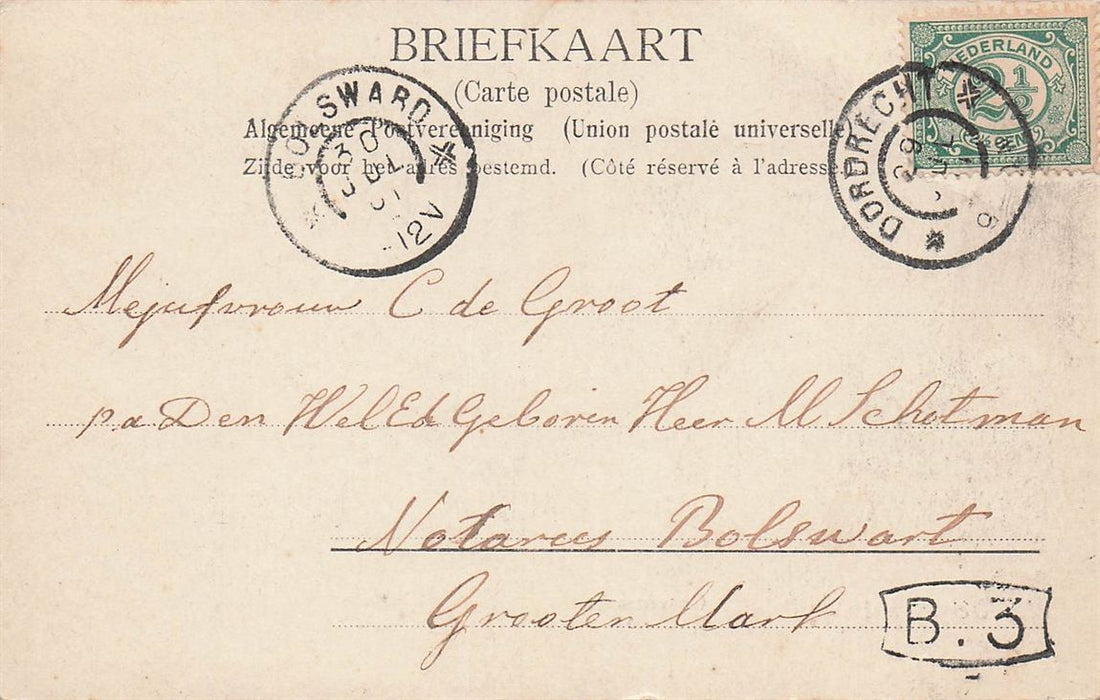 BRIEFKAART
(Carte postale)
Algemeene Postvereeniging (Union postale universelle)
Zijde voor het adres bestemd. (Côté réservé à l'adresse.
BOLSWARD
30
JUL
12V
DORDRECHT
29
JUL
NEDERLAND
2½
CENT
Mejufvrouw C de Groot
pa Den WelEd Geboren Heer M Schotman
Notarees Bolswart
Grooten Mark
B.3